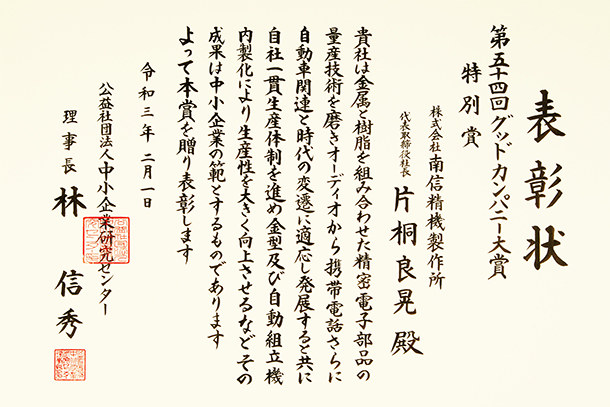 表彰状
第五十四回グッドカンパニー大賞
特別賞
株式会社南信精機製作所
代表取締役社長 片桐良晃 殿
貴社は金属と樹脂を組み合わせた精密電子部品の
量産技術を磨きオーディオから携帯電話さらに
自動車関連と時代の変遷に適応し発展すると共に
自社一貫生産体制を進め金型及び自動組立機
内製化により生産性を大きく向上させるなどその
成果は中小企業の範とするものであります
よって本賞を贈り表彰します
令和三年二月一日
公益社団法人中小企業研究センター
理事長 林 信秀